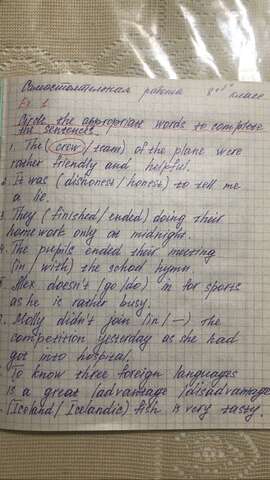 Самостоятельная работа 8 "б" класс
Ex. 1
Circle the appropriate words to complete
the sentences.
1. The (crew / team) of the plane were
rather friendly and helpful.
2. It was (dishonest / honest) to tell me
a lie.
3. They (finished / ended) doing their
homework only at midnight.
4. The pupils ended their meeting
(in / with) the school hymn.
5. Alex doesn't (go / do) in for sports
as he is rather busy.
Molly didn't join (in / —) the
competition yesterday as she had
got into hospital.
To know three foreign languages
is a great (advantage / disadvantage
(Iceland / Icelandic) fish is very tasty.